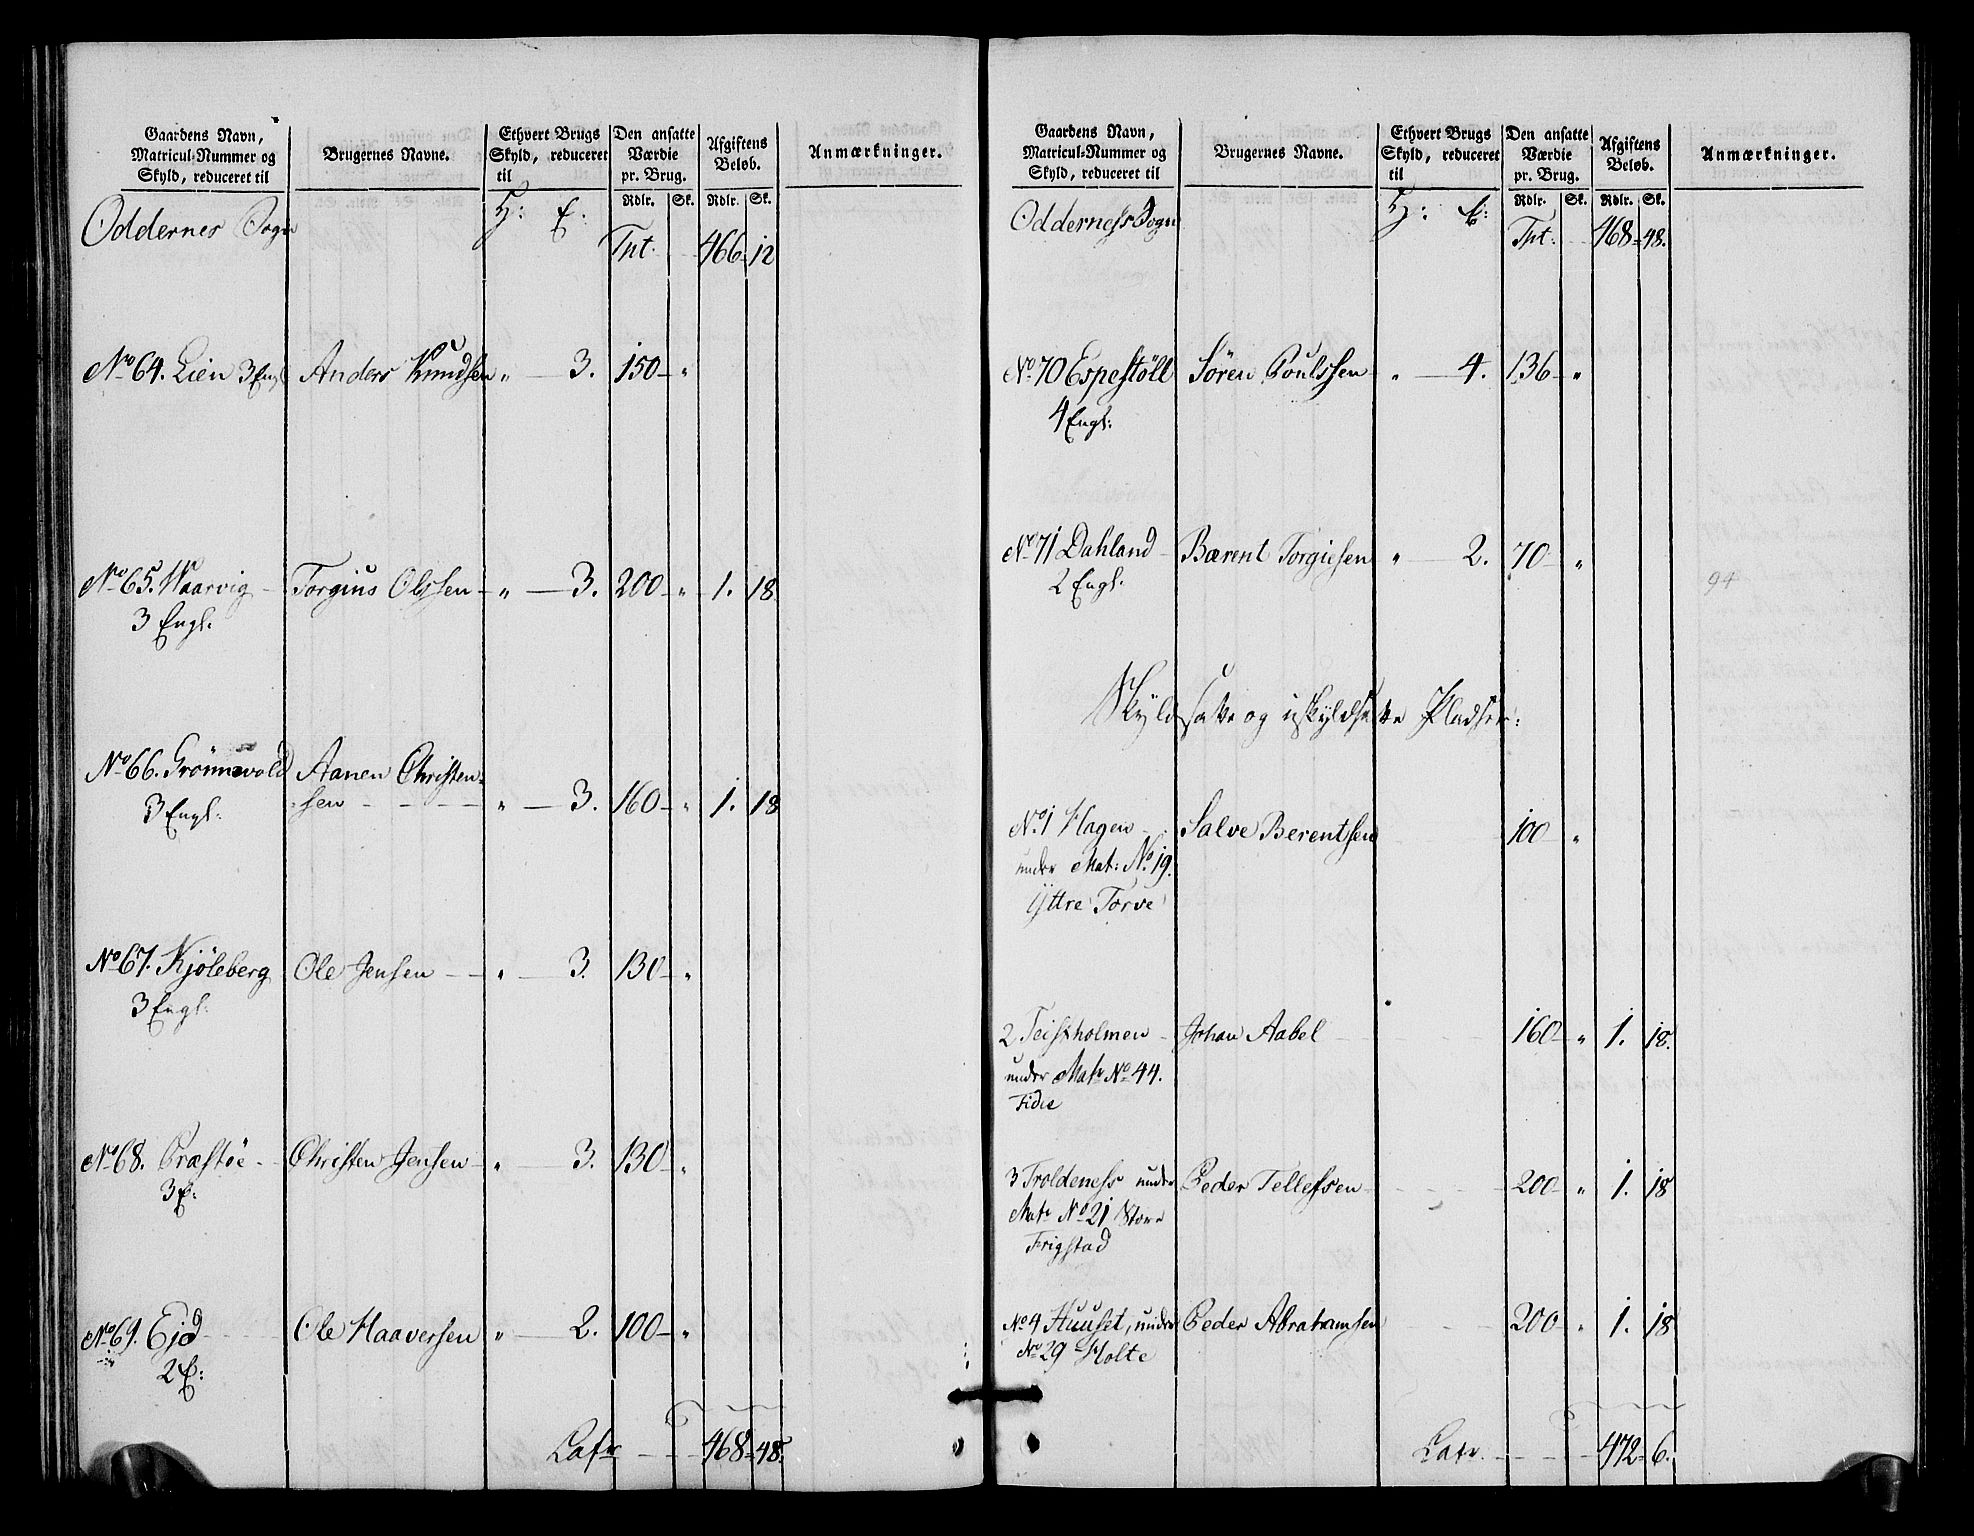 Gaardens Navn, Matricul-Nummer og Skyld, reduceret til | Brugernes Navne. | Ethvert Brugs Skyld, reduceret til | Den ansatte Værdie pr. Brug. | Afgiftens Beløb. | Anmærkninger.
Rdlr. Sk. Rdlr. Sk.
Oddernes Sogn H: E:
Tpt. 466 12
No 64. Lien 3 Engl Anders Knudsen " 3. 150 "
No 65. Waarvig Torgius Olssen " 3. 200 " 1. 18
3 Engl:
No 66. Grönnwold Aanen Christen-
3 Engl: sen " 3. 160 " 1. 18
No 67. Kjöleberg Ole Jensen " 3. 130 "
3 Engl:
No 68. Præstöe Christen Jensen " 3. 130 "
3 E:
No 69. Ejd Ole Haaversen " 2. 100 "
2 E:
Latr 468 48.
Gaardens Navn, Matricul-Nummer og Skyld, reduceret til | Brugernes Navne. | Ethvert Brugs Skyld, reduceret til | Den ansatte Værdie pr. Brug. | Afgiftens Beløb. | Anmærkninger.
Rdlr. Sk. Rdlr. Sk.
Odderness Sogn H: E:
Tpt. 468 48.
No 70 Espestöll Søren Poulssen " 4. 136 "
4 Engl:
No 71 Dahland Bærent Torgiesen " 2. 70 "
2 Engl.
94
Skyldsatte og uskyldsatte Pladser:
No 1 Hagen Salve Berentsen 100 "
under Mat: No 19.
Yttre Torve
2 Teistholmen Johan Aabel 160 " 1. 18.
under Matr No 44.
Fidie
3 Troldeness under Peder Tellefsen 200 " 1. 18
Matr No 21 Store
Frigstad
No 4 Huuset, under Peder Abrahamsen 200 " 1. 18
No 29 Holte
Latr. 472 6.